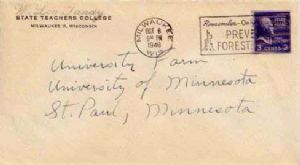 STATE TEACHERS COLLEGE
MILWAUKEE 11, WISCONSIN
MILWAUKEE
WIS.
OCT 8
PM
1948
PREVE
FOREST
3 CENTS 3
University Farm
University of Minnesota
St. Paul, Minnesota